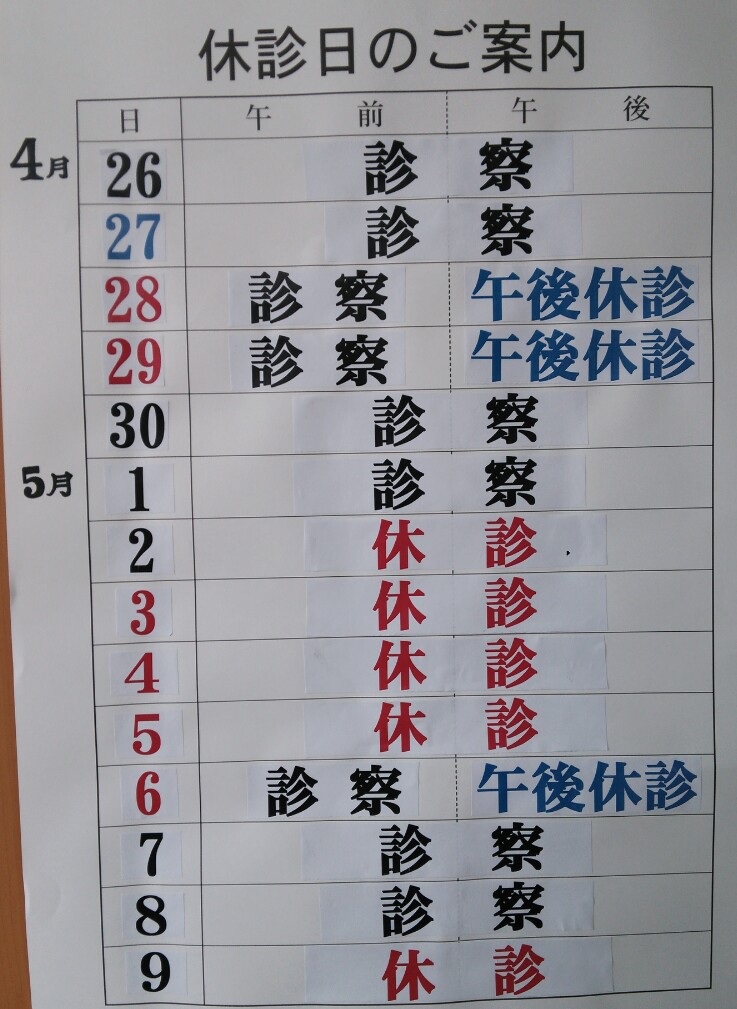 休診日のご案内
日 午前 午後
4月 26 診察
27 診察
28 診察 午後休診
29 診察 午後休診
30 診察
5月 1 診察
2 休診
3 休診
4 休診
5 休診
6 診察 午後休診
7 診察
8 診察
9 休診